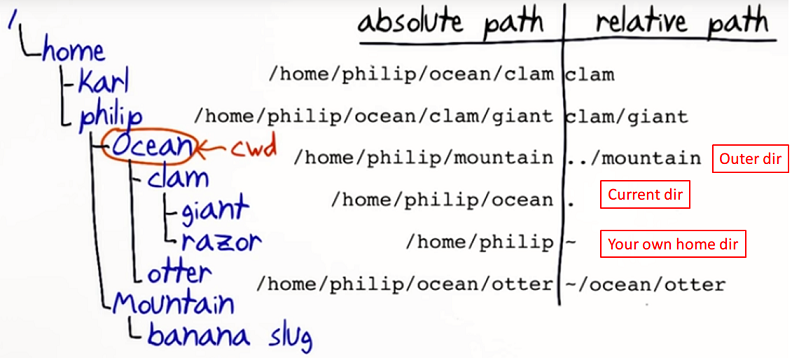 /
home
Karl
philip
Ocean
cwd
clam
giant
razor
otter
Mountain
banana slug
absolute path relative path
/home/philip/ocean/clam clam
/home/philip/ocean/clam/giant clam/giant
/home/philip/mountain ../mountain Outer dir
/home/philip/ocean . Current dir
/home/philip ~ Your own home dir
/home/philip/ocean/otter ~/ocean/otter